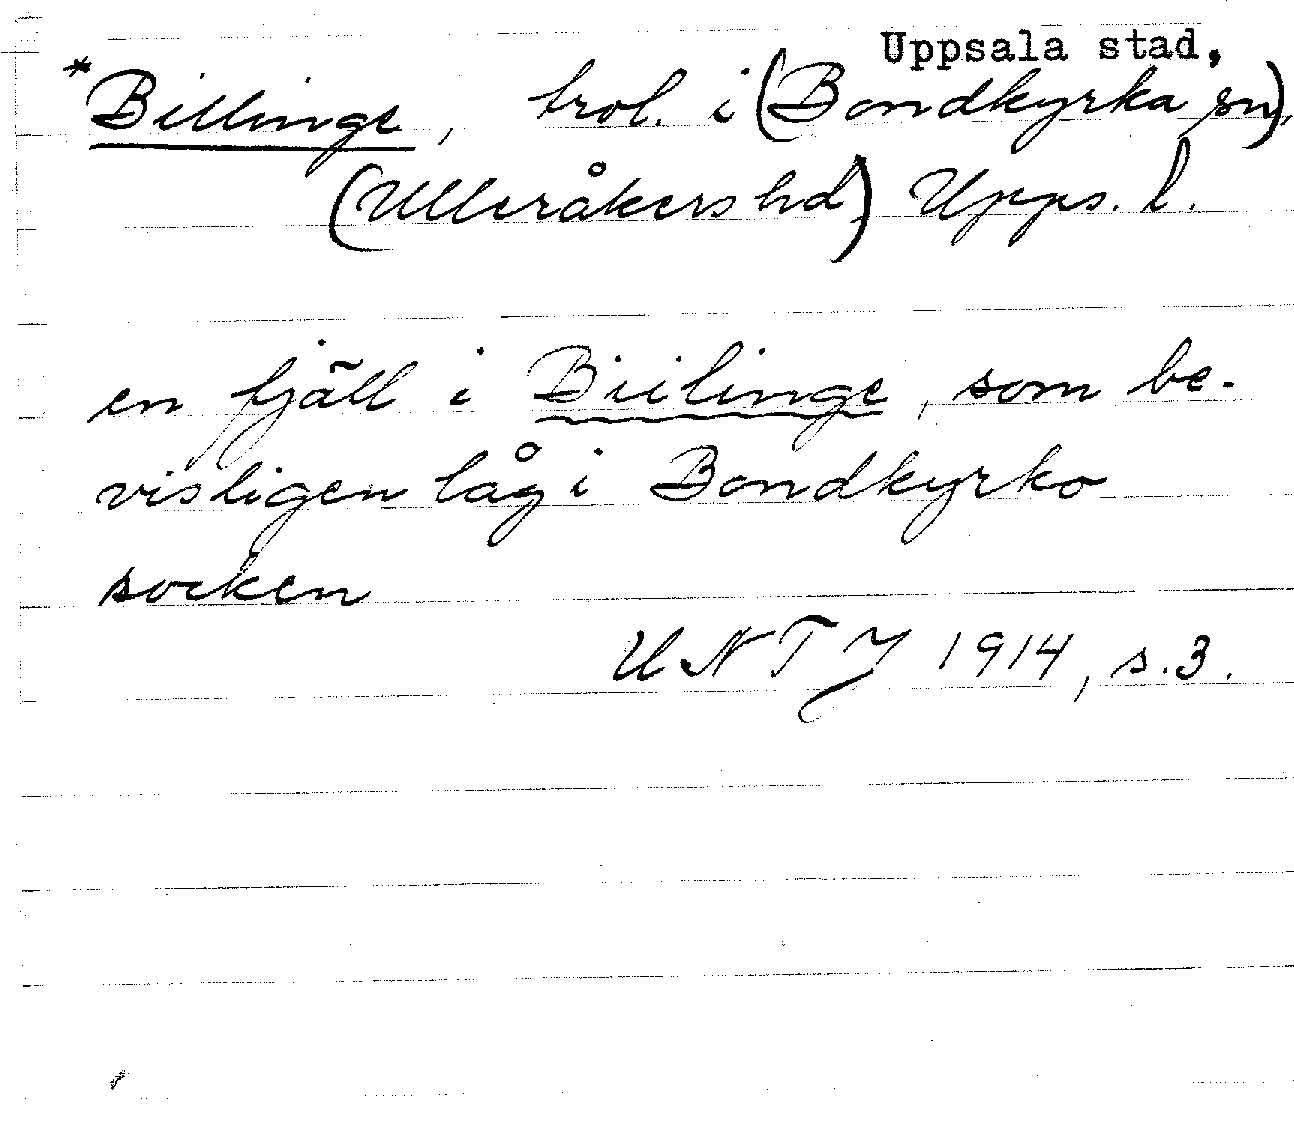 Uppsala stad,
*Billinge, trol. i (Bondkyrka sn),
(Ulleråkers hd) Upps. l.
en fjäll i Biilinge, som be-
visligen låg i Bondkyrko
socken
UNT J 1914, s. 3.